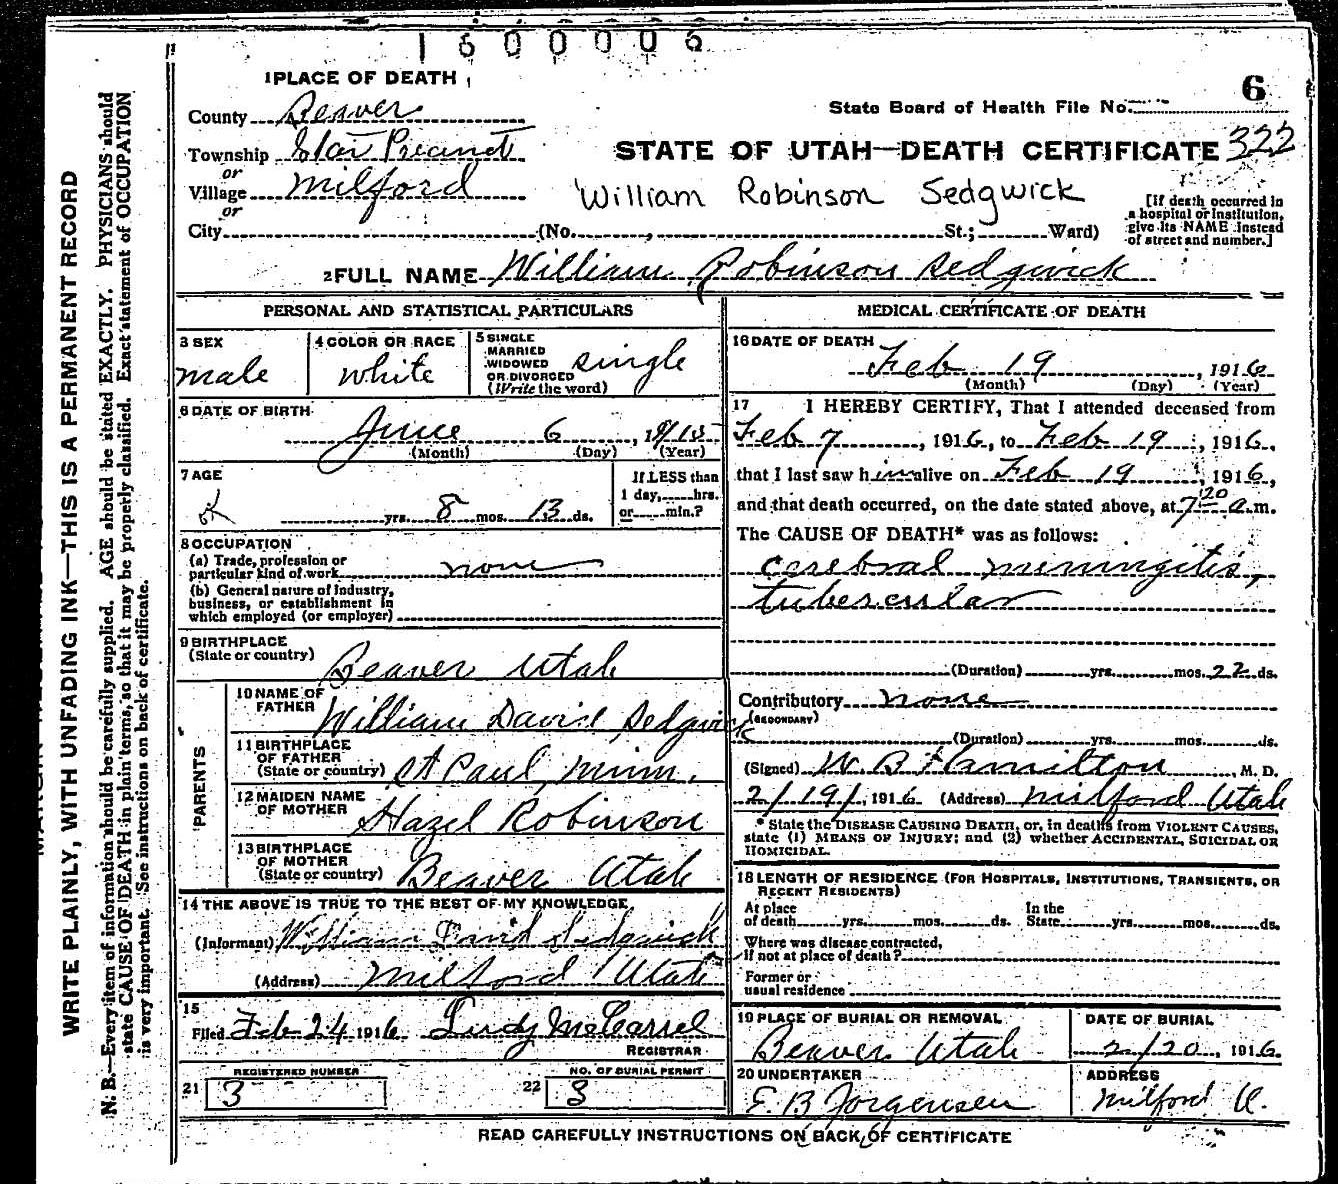 1600006
1 PLACE OF DEATH
6
County Beaver
State Board of Health File No.
Township Star Precinct
322
STATE OF UTAH—DEATH CERTIFICATE
or
Village Milford
William Robinson Sedgwick
[If death occurred in
a hospital or institution,
give its NAME instead
of street and number.]
or
City (No. , St.; Ward)
2 FULL NAME William Robinson Sedgwick
PERSONAL AND STATISTICAL PARTICULARS
3 SEX
male
4 COLOR OR RACE
white
5 SINGLE
MARRIED
WIDOWED
OR DIVORCED
(Write the word)
single
6 DATE OF BIRTH
June 6, 1915
(Month) (Day) (Year)
7 AGE
yrs. 8 mos. 13 ds.
If LESS than
1 day, hrs.
or min.?
8 OCCUPATION
(a) Trade, profession or
particular kind of work none
(b) General nature of industry,
business, or establishment in
which employed (or employer)
9 BIRTHPLACE
(State or country) Beaver Utah
PARENTS
10 NAME OF
FATHER William David Sedgwick
11 BIRTHPLACE
OF FATHER
(State or country) St Paul, Minn.
12 MAIDEN NAME
OF MOTHER Hazel Robinson
13 BIRTHPLACE
OF MOTHER
(State or country) Beaver Utah
14 THE ABOVE IS TRUE TO THE BEST OF MY KNOWLEDGE
(Informant) William David Sedgwick
(Address) Milford Utah
15
Filed Feb 24 1916 McCarrel
REGISTRAR
REGISTERED NUMBER
21 3
NO. OF BURIAL PERMIT
22 3
MEDICAL CERTIFICATE OF DEATH
16 DATE OF DEATH
Feb 19, 1916
(Month) (Day) (Year)
17 I HEREBY CERTIFY, That I attended deceased from
Feb 7, 1916, to Feb 19, 1916,
that I last saw him alive on Feb 19, 1916,
and that death occurred, on the date stated above, at 7 20 a.m.
The CAUSE OF DEATH* was as follows:
cerebral meningitis,
tubercular
(Duration) yrs. mos. 22 ds.
Contributory none
(SECONDARY)
(Duration) yrs. mos. ds.
(Signed) W. B Hamilton, M. D.
2/19/, 1916 (Address) Milford Utah
* State the DISEASE CAUSING DEATH, or, in deaths from VIOLENT CAUSES,
state (1) MEANS OF INJURY; and (2) whether ACCIDENTAL, SUICIDAL OR
HOMICIDAL.
18 LENGTH OF RESIDENCE (FOR HOSPITALS, INSTITUTIONS, TRANSIENTS, OR
RECENT RESIDENTS)
At place In the
of death yrs. mos. ds. State yrs. mos. ds.
Where was disease contracted,
if not at place of death?
Former or
usual residence
19 PLACE OF BURIAL OR REMOVAL
Beaver Utah
DATE OF BURIAL
2/20, 1916.
20 UNDERTAKER
E. B Jorgensen
ADDRESS
Milford U.
READ CAREFULLY INSTRUCTIONS ON BACK OF CERTIFICATE
WRITE PLAINLY, WITH UNFADING INK—THIS IS A PERMANENT RECORD
N. B.—Every item of information should be carefully supplied. AGE should be stated EXACTLY. PHYSICIANS should
state CAUSE OF DEATH in plain terms, so that it may be properly classified. Exact statement of OCCUPATION
is very important. See instructions on back of certificate.